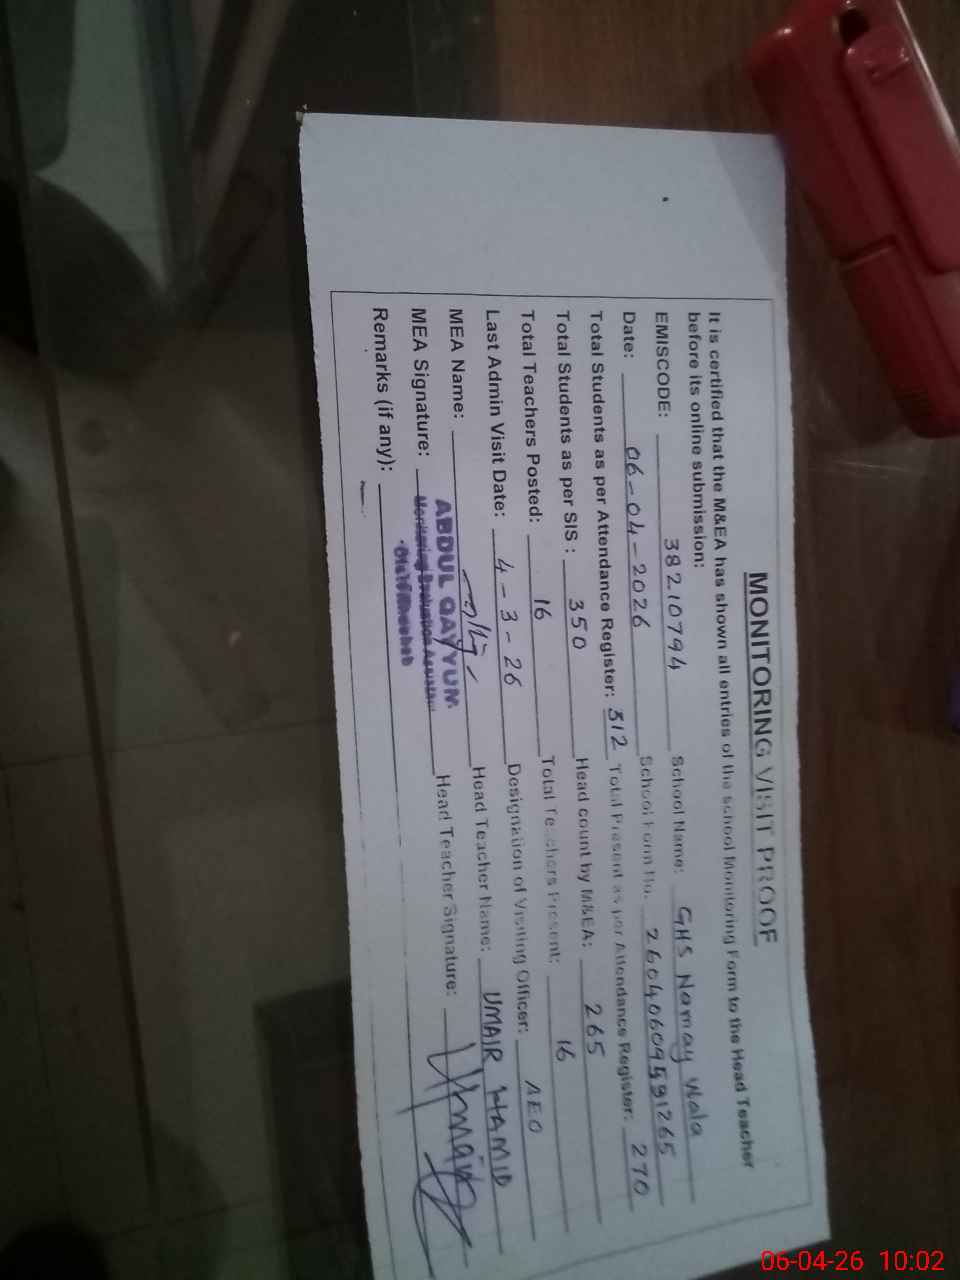 MONITORING VISIT PROOF
It is certified that the M&EA has shown all entries of the school Monitoring Form to the Head Teacher
before its online submission:
EMISCODE: 38210794 School Name: GHS Namay Wala
Date: 06-04-2026 School Form No. 26040609591265
Total Students as per Attendance Register: 312 Total Present as per Attendance Register: 270
Total Students as per SIS : 350 Head count by M&EA: 265
Total Teachers Posted: 16 Total Teachers Present: 16
Last Admin Visit Date: 4-3-26 Designation of Visiting Officer: AEO
MEA Name: Head Teacher Name: UMAIR HAMID
ABDUL QAYYUM
MEA Signature: Monitoring Evaluation Assistant Head Teacher Signature: Umair
Remarks (if any):
06-04-26 10:02